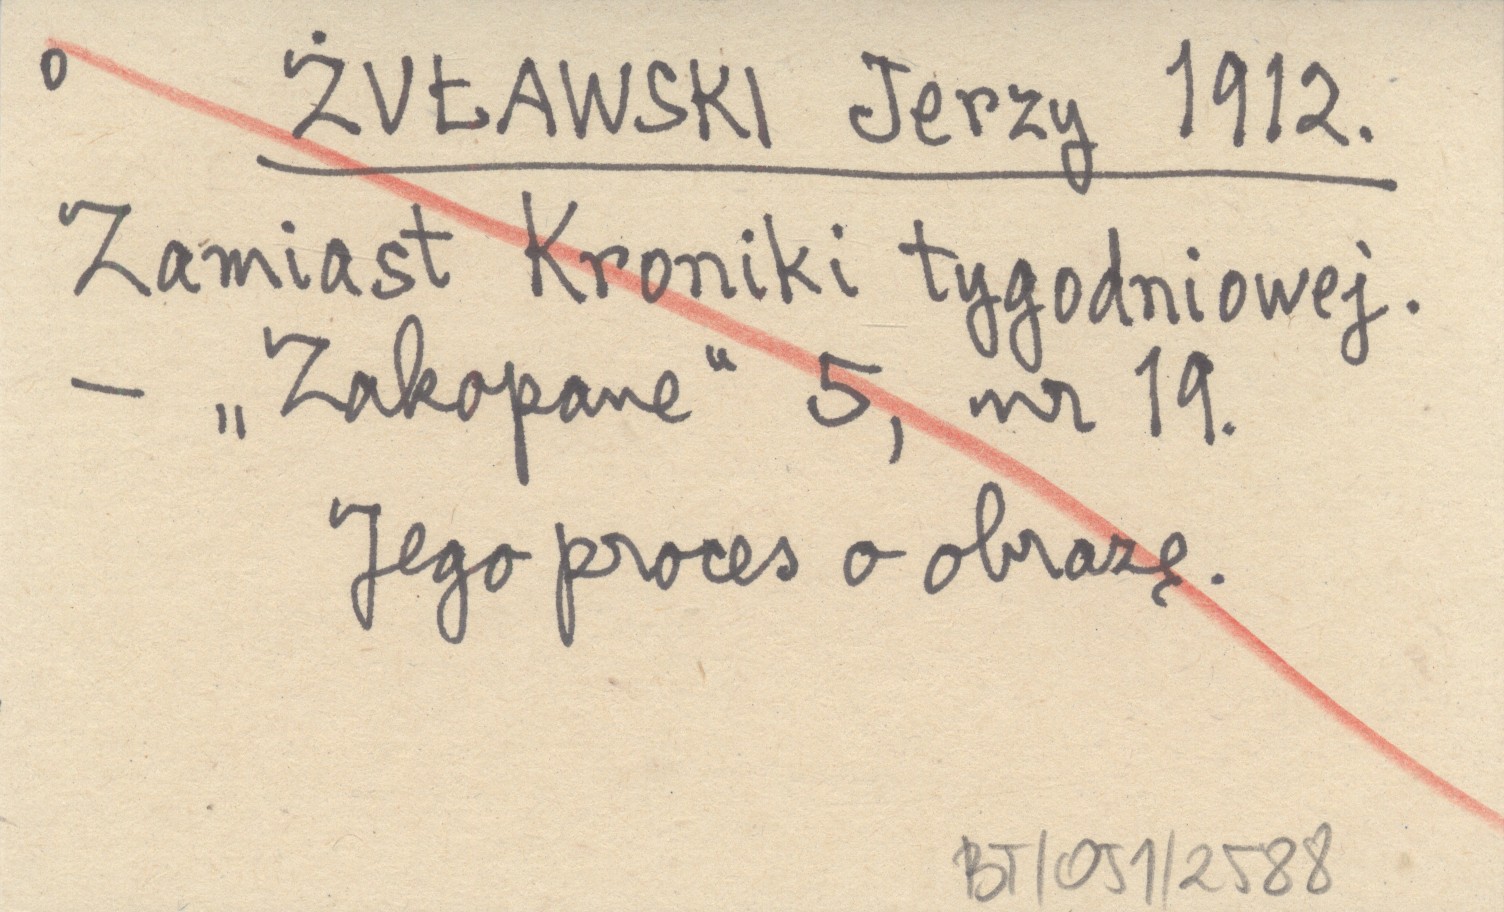 o ŻUŁAWSKI Jerzy 1912.
Zamiast Kroniki tygodniowej.
– „Zakopane“ 5, nr 19.
Jego proces o obrazę.
BT/051/2588